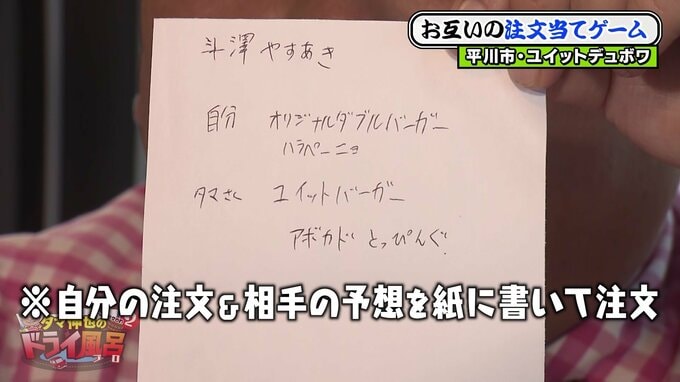 お互いの注文当てゲーム
平川市・ユイットデュボワ
斗澤 やすあき
自分 オリジナルダブルバーガー
ハラペーニョ
タマさん ユイットバーガー
アボカド とっぴんぐ
※自分の注文&相手の予想を紙に書いて注文
タマ伸也の
ドライ風呂